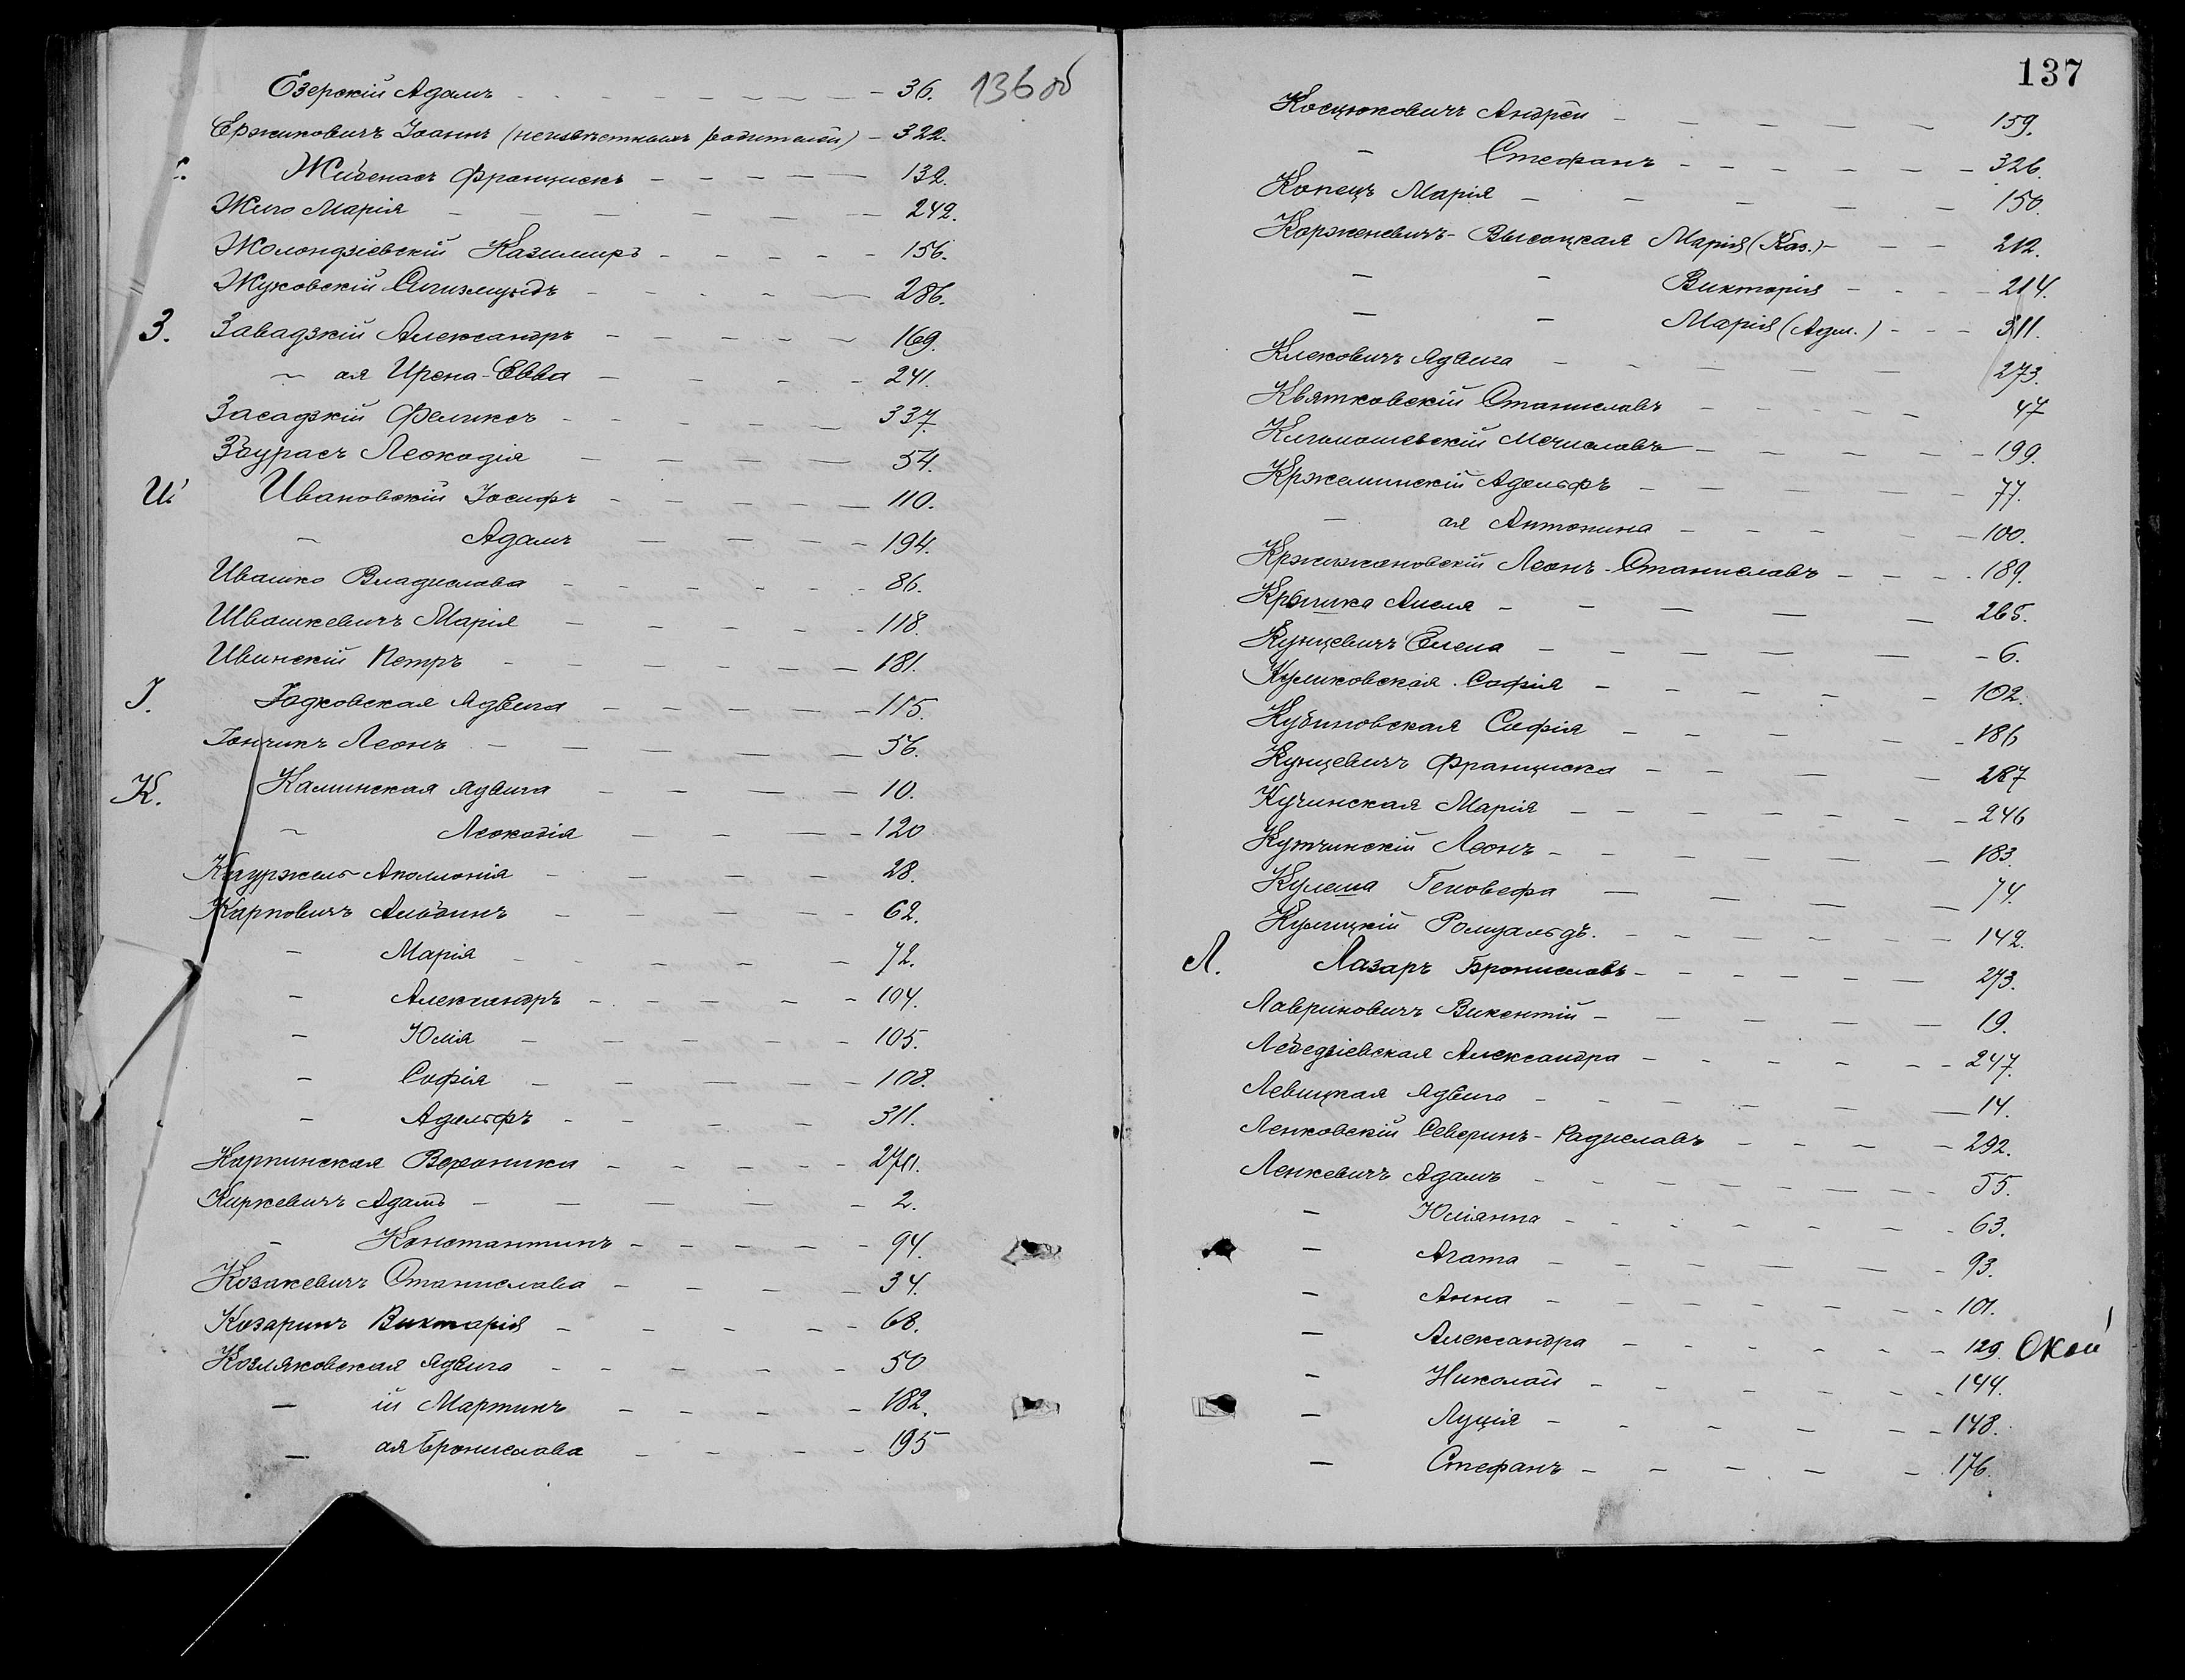 136 об
Езерскій Адамъ - - - - - - - - 36.
Ержиковичъ Іоаннъ (неизвѣстныхъ родителей) - 322.
Жибенасъ Францискъ - - - - - 132.
Жиго Марія - - - - - - - 242.
Жолондзіевскій Казимиръ - - - - - 156.
Жуковскій Сигизмундъ - - - - - 286.
З. Завадзкій Александръ - - - - - 169.
~ ая Ирена-Евва - - - - 241.
Засадзкій Феликсъ - - - - - - 337.
Збурасъ Леокадія - - - - - 54.
И. Ивановскій Іосифъ - - - - - 110.
~ Адамъ - - - - - 194.
Ивашко Владислава - - - - - - 86.
Ивашкевичъ Марія - - - - - - 118.
Ивинскій Петръ - - - - - - - 181.
І. Іодковская Ядвига - - - - - - 115.
Іончикъ Леонъ - - - - - - 56.
К. Каминская Ядвига - - - - 10.
~ Леокадія - - - - 120
Аполлонія - - - - - 28.
Карповичъ Альбинъ - - - - - - 62.
- Марія - - - - - - 72.
- Александръ - - - - - 104.
- Юлія - - - - - - 105.
- Софія - - - - - - 108.
- Адольфъ - - - - - 311.
Карпинская Вероника - - - - - 271.
Киркевичъ Адамъ - - - - - - 2.
- Константинъ - - - - - 94.
Козакевичъ Станислава - - - - - 34.
Козаринъ Викторія - - - - - - 68.
Козляковская Ядвига - - - - - - 50
- ій Мартинъ - - - - - 182.
- ая Бронислава - - - - - 195
137
Косцюковичъ Андрей - - - - - - 159.
- Стефанъ - - - - - - - 326.
Копецъ Марія - - - - - - 150.
Корженевичъ-Высоцкая Марія (Каз.) - - - 212.
- - Викторія - - - - 214.
- - Марія (Адм.) - - - 311.
Клековичъ Ядвига - - - - - - 273.
Квятковскій Станиславъ - - - - - 47
Мечиславъ - - - - - - 199.
Кржеминскій Адольфъ - - - - - - 77.
- ая Антонина - - - - - 100.
Кржижановскій Леонъ-Станиславъ - - - - 189.
Крышка Анеля - - - - - - 265.
Кунцевичъ Елена - - - - - - - 6.
Куликовская Софія - - - - - - 102.
Кубиловская Софія - - - - - - 186
Кунцевичъ Франциска - - - - - 287
Кучинская Марія - - - - - - - 246
Кутчинскій Леонъ - - - - - - - 183.
Кулеша Геновефа - - - - - 74.
Кулицкій Ромуальдъ. - - - - - - - 142.
Л. Лазаръ Брониславъ - - - - - - 273.
Лавриновичъ Викентій - - - - - - 19.
Лебедзіевская Александра - - - - - - 247.
Левицкая Ядвига - - - - - - - 14.
Ленковскій Северинъ-Радиславъ - - - - 292.
Ленкевичъ Адамъ - - - - - - - - 55.
- Юліанна - - - - - - - 63.
- Агата - - - - - - - 93.
- Анна - - - - - - - - 101.
- Александра - - - - - - 129.
- Николай - - - - - - - 144.
- Луція - - - - - - - 148.
- Стефанъ - - - - - - 176.